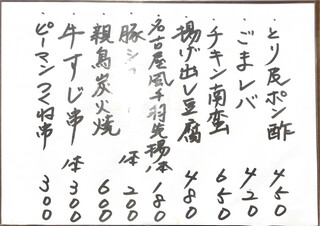 ・とり皮ポン酢 450
・ごまレバ 420
・チキン南蛮 650
・揚げ出し豆腐 480
・名古屋風手羽先揚 1本 180
・豚シ 1本 200
・親鳥炭火焼 600
・牛すじ串 1本 300
・ピーマンつくね串 300